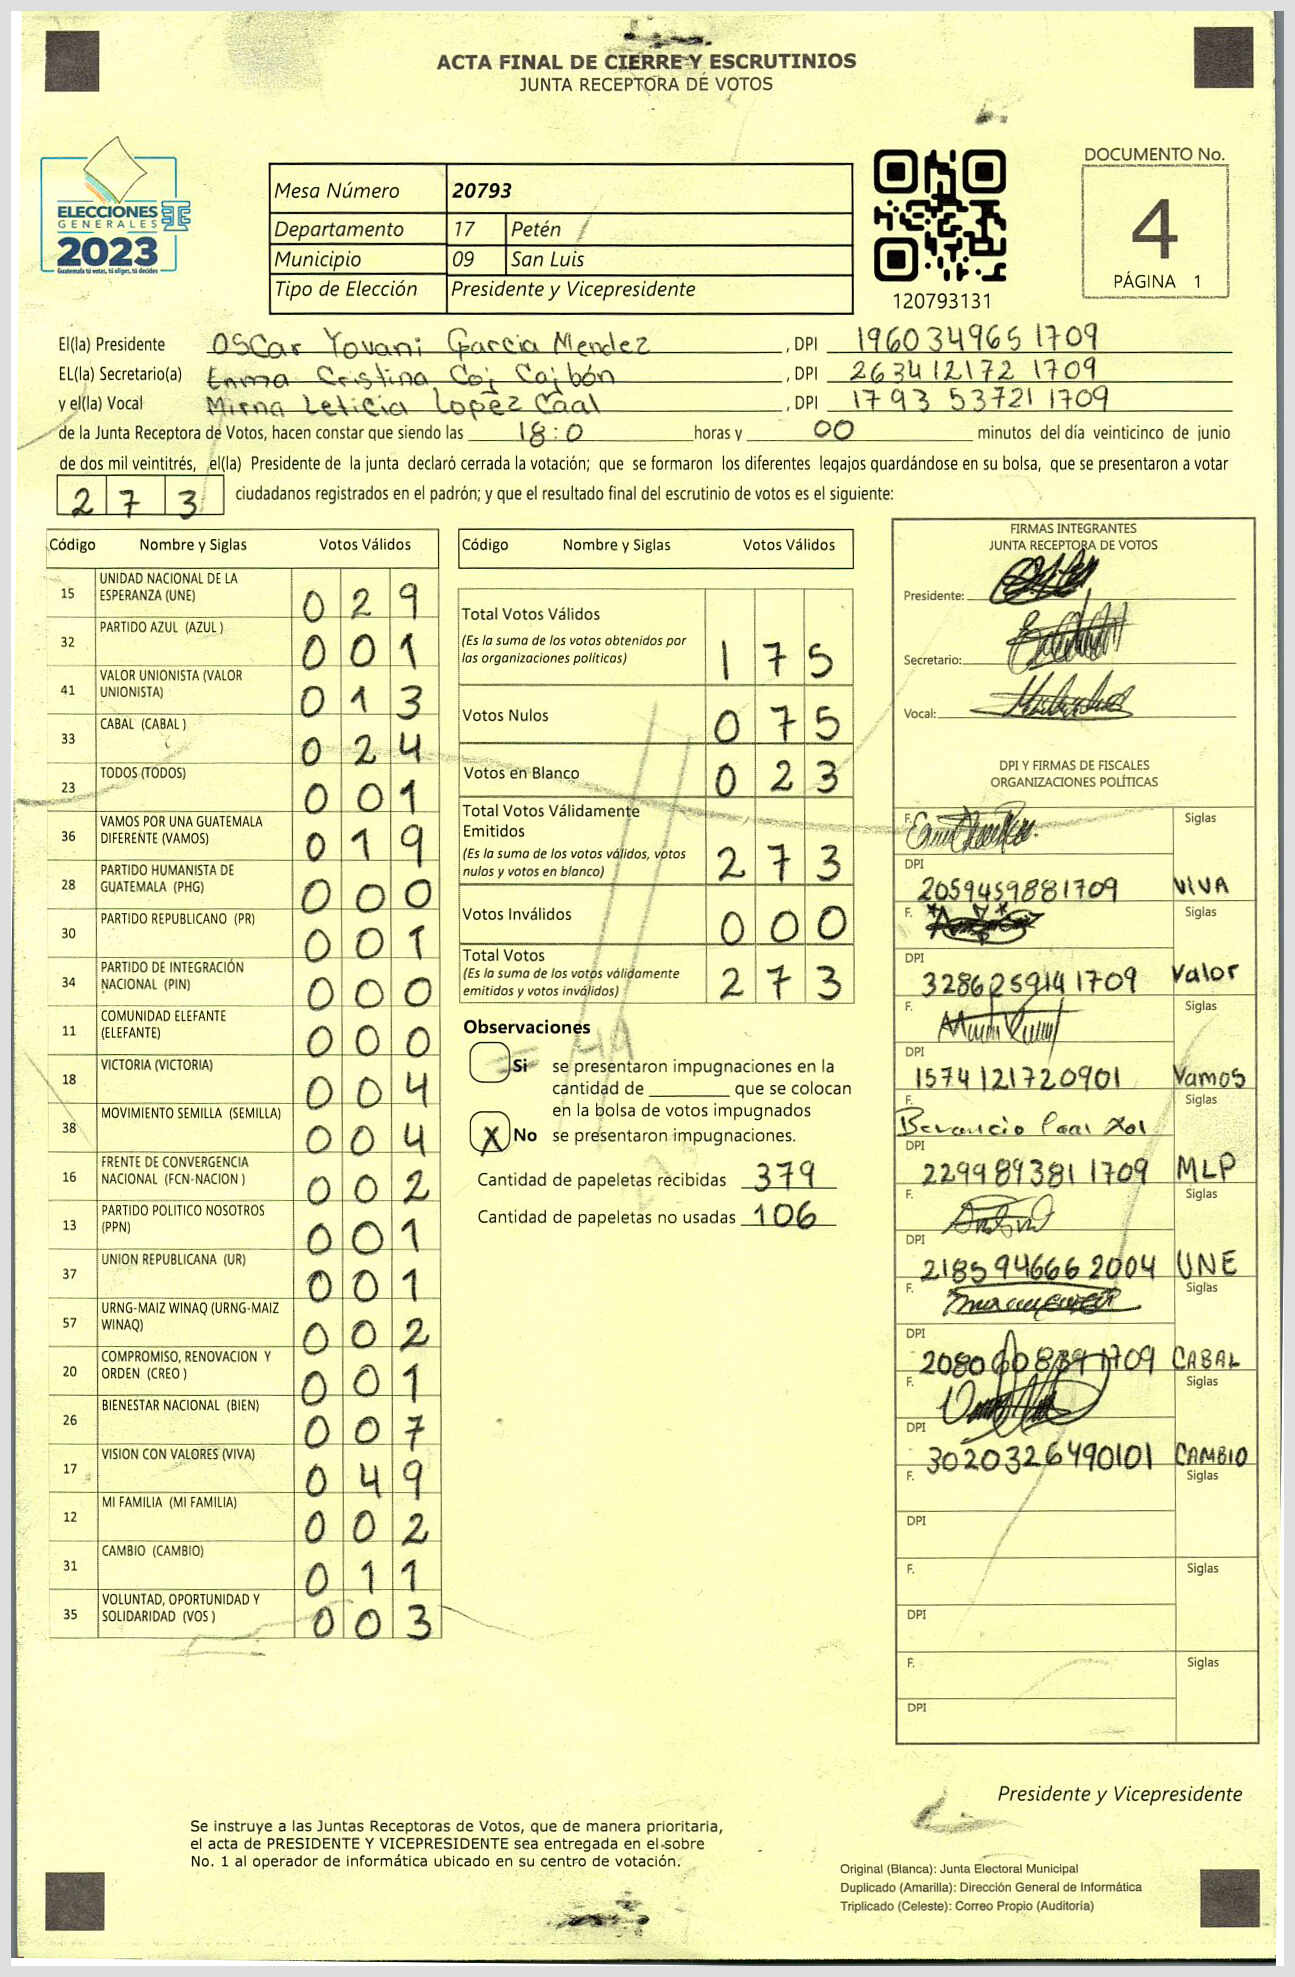 ACTA FINAL DE CIERRE Y ESCRUTINIOS
JUNTA RECEPTORA DE VOTOS
ELECCIONES
GENERALES
2023
Guatemala tú votas, tú eliges, tú decides
Mesa Número 20793
Departamento 17 Petén
Municipio 09 San Luis
Tipo de Elección Presidente y Vicepresidente
120793131
DOCUMENTO No.
4
PÁGINA 1
El(la) Presidente Oscar Yovani Garcia Mendez, DPI 196034965 1709
EL(la) Secretario(a) Enma Cristina Coj Cajbón, DPI 263412172 1709
y el(la) Vocal Mirna Leticia Lopez Caal, DPI 1793 53721 1709
de la Junta Receptora de Votos, hacen constar que siendo las 18:0 horas y 00 minutos del día veinticinco de junio
de dos mil veintitrés, el(la) Presidente de la junta declaró cerrada la votación; que se formaron los diferentes legajos guardándose en su bolsa, que se presentaron a votar
273 ciudadanos registrados en el padrón; y que el resultado final del escrutinio de votos es el siguiente:
Código Nombre y Siglas Votos Válidos
15 UNIDAD NACIONAL DE LA ESPERANZA (UNE) 029
32 PARTIDO AZUL (AZUL ) 001
41 VALOR UNIONISTA (VALOR UNIONISTA) 013
33 CABAL (CABAL ) 024
23 TODOS (TODOS) 001
36 VAMOS POR UNA GUATEMALA DIFERENTE (VAMOS) 019
28 PARTIDO HUMANISTA DE GUATEMALA (PHG) 000
30 PARTIDO REPUBLICANO (PR) 001
34 PARTIDO DE INTEGRACIÓN NACIONAL (PIN) 000
11 COMUNIDAD ELEFANTE (ELEFANTE) 000
18 VICTORIA (VICTORIA) 004
38 MOVIMIENTO SEMILLA (SEMILLA) 004
16 FRENTE DE CONVERGENCIA NACIONAL (FCN-NACION ) 002
13 PARTIDO POLITICO NOSOTROS (PPN) 001
37 UNION REPUBLICANA (UR) 001
57 URNG-MAIZ WINAQ (URNG-MAIZ WINAQ) 002
20 COMPROMISO, RENOVACION Y ORDEN (CREO ) 001
26 BIENESTAR NACIONAL (BIEN) 007
17 VISION CON VALORES (VIVA) 049
12 MI FAMILIA (MI FAMILIA) 002
31 CAMBIO (CAMBIO) 011
35 VOLUNTAD, OPORTUNIDAD Y SOLIDARIDAD (VOS ) 003
Código Nombre y Siglas Votos Válidos
Total Votos Válidos 175
(Es la suma de los votos obtenidos por
las organizaciones políticas)
Votos Nulos 075
Votos en Blanco 023
Total Votos Válidamente
Emitidos 273
(Es la suma de los votos válidos, votos
nulos y votos en blanco)
Votos Inválidos 000
Total Votos 273
(Es la suma de los votos válidamente
emitidos y votos inválidos)
Observaciones
Si se presentaron impugnaciones en la
cantidad de ________ que se colocan
en la bolsa de votos impugnados
X No se presentaron impugnaciones.
Cantidad de papeletas recibidas 379
Cantidad de papeletas no usadas 106
FIRMAS INTEGRANTES
JUNTA RECEPTORA DE VOTOS
Presidente:
Secretario:
Vocal:
DPI Y FIRMAS DE FISCALES
ORGANIZACIONES POLÍTICAS
F. Siglas
DPI 2059459881709 VIVA
F. Siglas
DPI 3286259141709 Valor
F. Siglas
DPI 1574121720901 Vamos
F. Siglas
DPI 229989381 1709 MLP
F. Siglas
DPI 218594666 2004 UNE
F. Siglas
DPI CABAL
F. Siglas
DPI 3020326490101 CAMBIO
F. Siglas
DPI
F. Siglas
DPI
F. Siglas
DPI
Presidente y Vicepresidente
Se instruye a las Juntas Receptoras de Votos, que de manera prioritaria,
el acta de PRESIDENTE Y VICEPRESIDENTE sea entregada en el sobre
No. 1 al operador de informática ubicado en su centro de votación.
Original (Blanca): Junta Electoral Municipal
Duplicado (Amarilla): Dirección General de Informática
Triplicado (Celeste): Correo Propio (Auditoría)